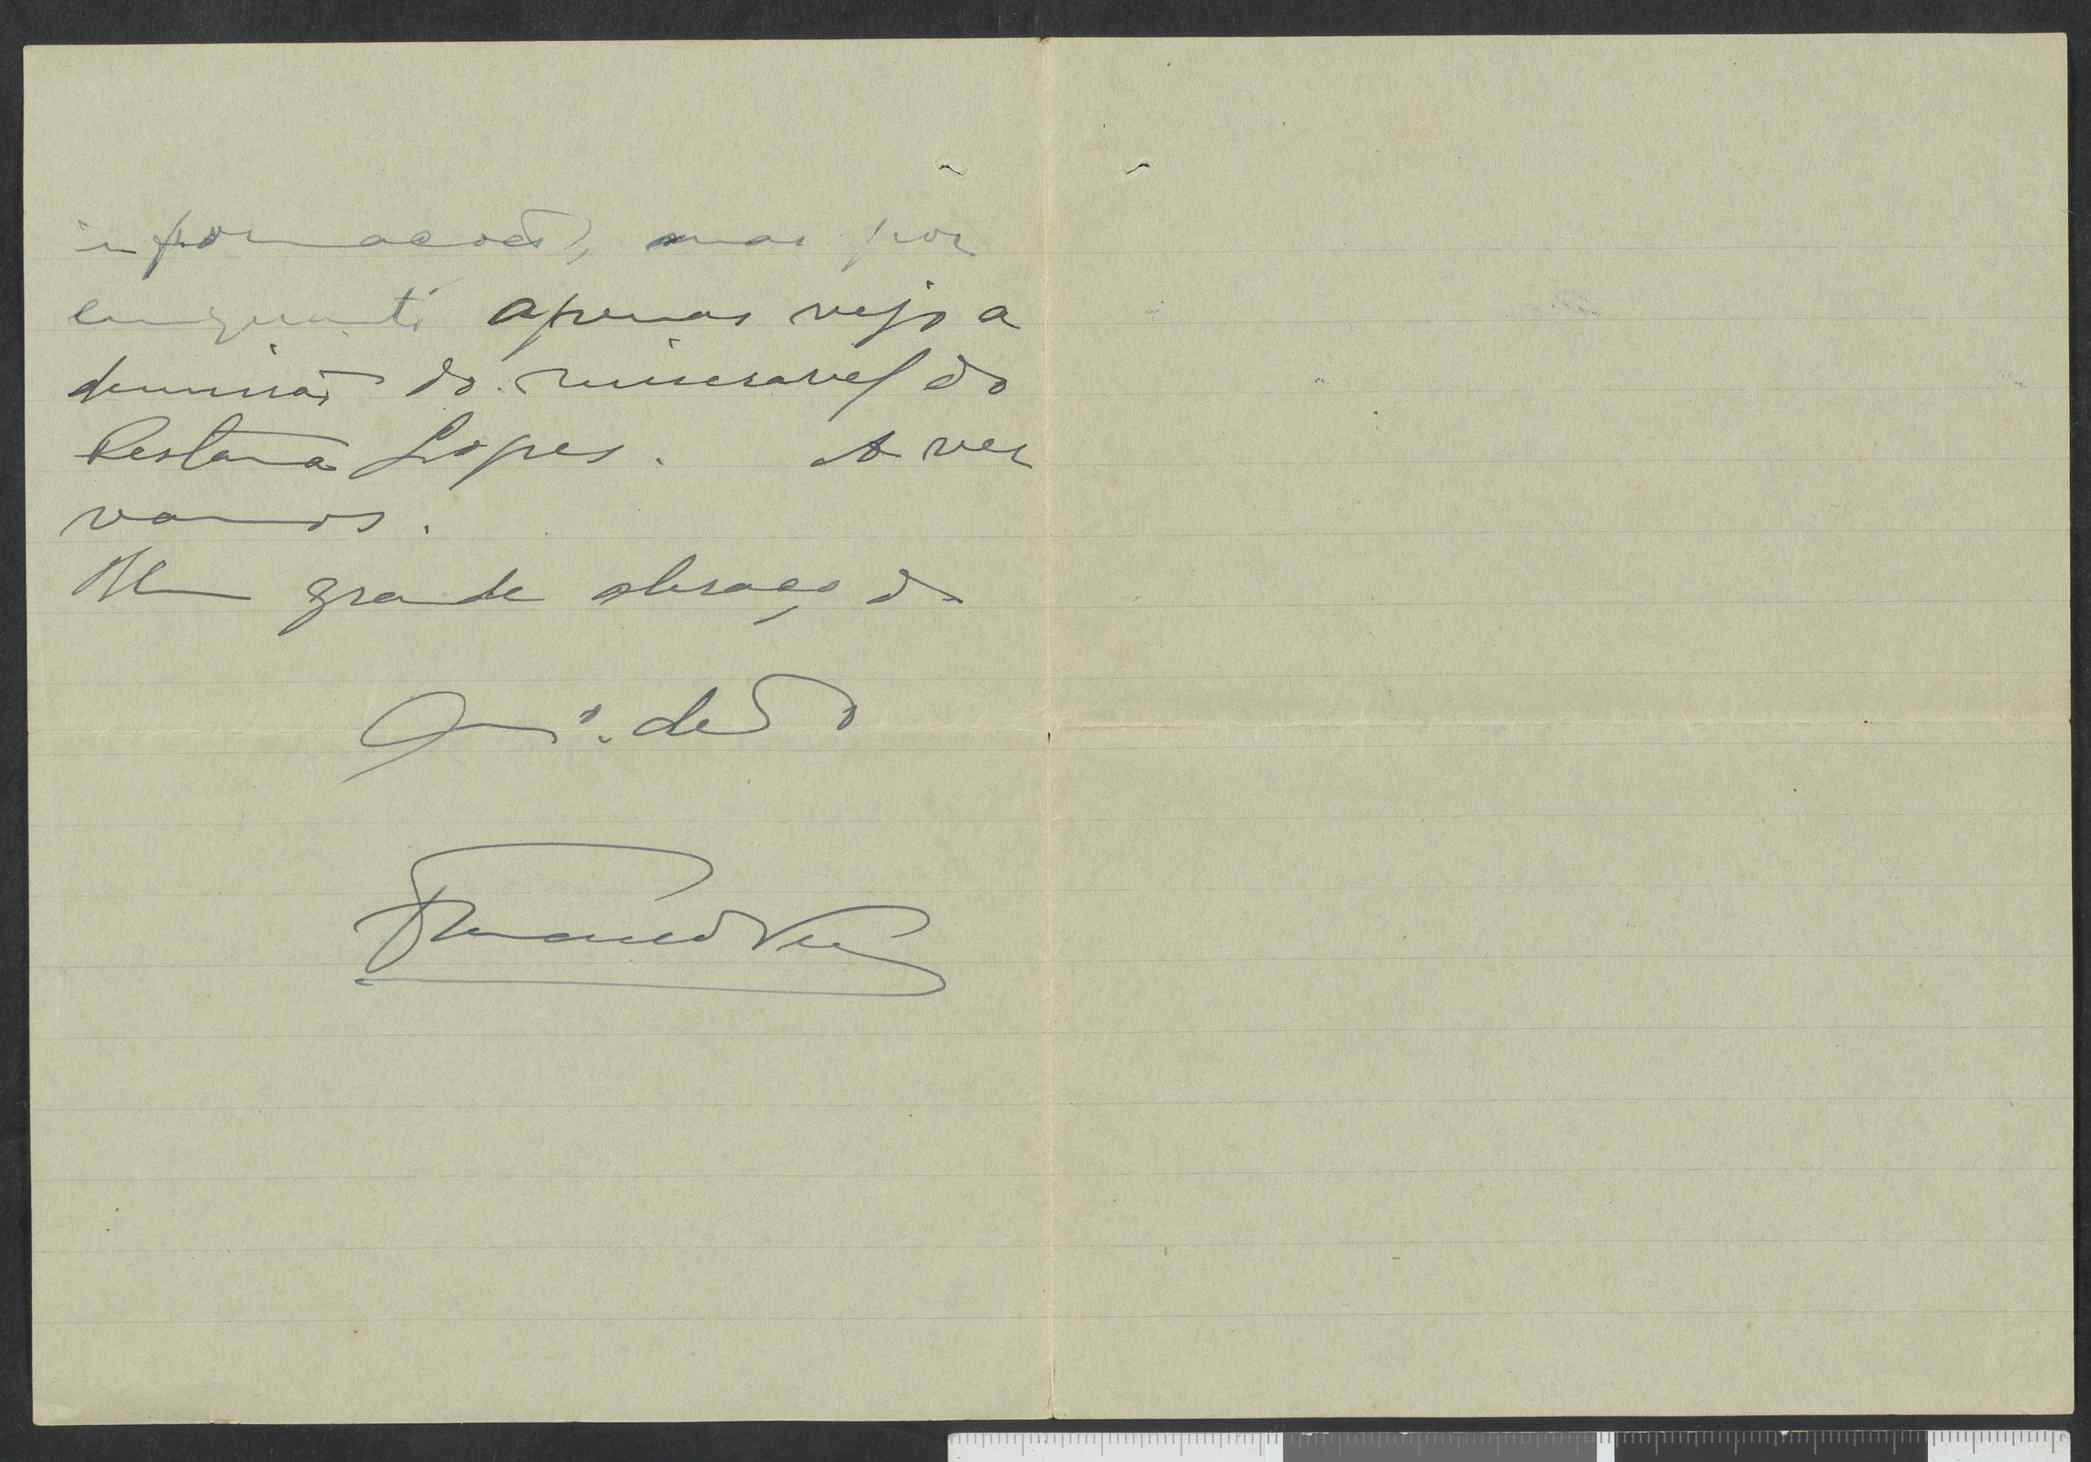 informações), mas por
emquanto apenas vejo a
demissão do miseravel do
Pestana Lopes. A ver
vamos.
Um grande abraço do
Am.º ded.º